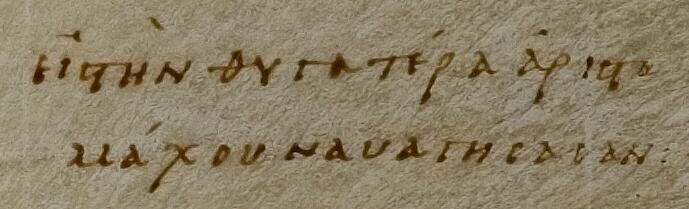 εἰς τὴν θυγατέρα ἀριστο
μάχου ναυαγήσασαν: